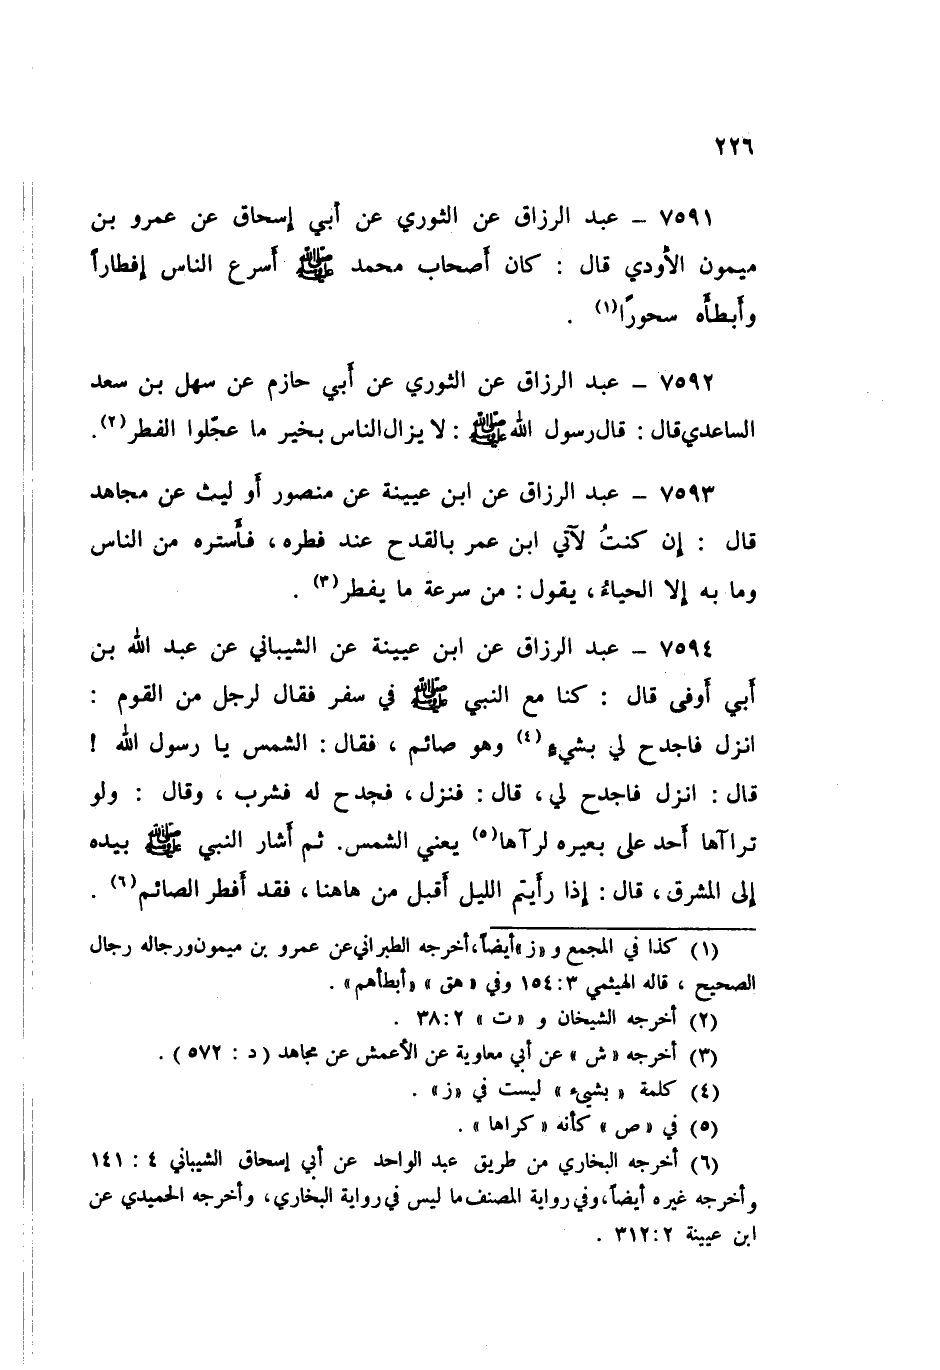 ٢٢٦
٧٥٩١ – عبد الرزاق عن الثوري عن أبي إسحاق عن عمرو بن
ميمون الأودي قال : كان أصحاب محمد ﷺ أسرع الناس إفطاراً
وأبطأه سحورًا(١) .
٧٥٩٢ – عبد الرزاق عن الثوري عن أبي حازم عن سهل بن سعد
الساعدي قال : قال رسول الله ﷺ : لا يزال الناس بخير ما عجّلوا الفطر(٢).
٧٥٩٣ – عبد الرزاق عن ابن عيينة عن منصور أو ليث عن مجاهد
قال : إن كنتُ لآتي ابن عمر بالقدح عند فطره، فأستره من الناس
وما به إلا الحياءُ، يقول : من سرعة ما يفطر(٣) .
٧٥٩٤ – عبد الرزاق عن ابن عيينة عن الشيباني عن عبد الله بن
أبي أوفى قال : كنا مع النبي ﷺ في سفر فقال لرجل من القوم :
انزل فاجدح لي بشيء(٤) وهو صائم ، فقال : الشمس يا رسول الله !
قال : انزل فاجدح لي، قال : فنزل، فجدح له فشرب ، وقال : ولو
تراآها أحد على بعيره لرآها(٥) يعني الشمس. ثم أشار النبي ﷺ بيده
إلى المشرق، قال : إذا رأيتم الليل أقبل من هاهنا، فقد أفطر الصائم(٦) .
(١) كذا في المجمع و «ز» أيضاً، أخرجه الطبراني عن عمرو بن ميمون ورجاله رجال
الصحيح ، قاله الهيثمي ٣ : ١٥٤ وفي « هق » «أبطأهم» .
(٢) أخرجه الشيخان و « ت » ٢ : ٣٨ .
(٣) أخرجه « ش » عن أبي معاوية عن الأعمش عن مجاهد ( د : ٥٧٢ ) .
(٤) كلمة « بشيء » ليست في «ز» .
(٥) في « ص » كأنه « كراها » .
(٦) أخرجه البخاري من طريق عبد الواحد عن أبي إسحاق الشيباني ٤ : ١٤١
وأخرجه غيره أيضاً، وفي رواية المصنف ما ليس في رواية البخاري، وأخرجه الحميدي عن
ابن عيينة ٢ : ٣١٢ .